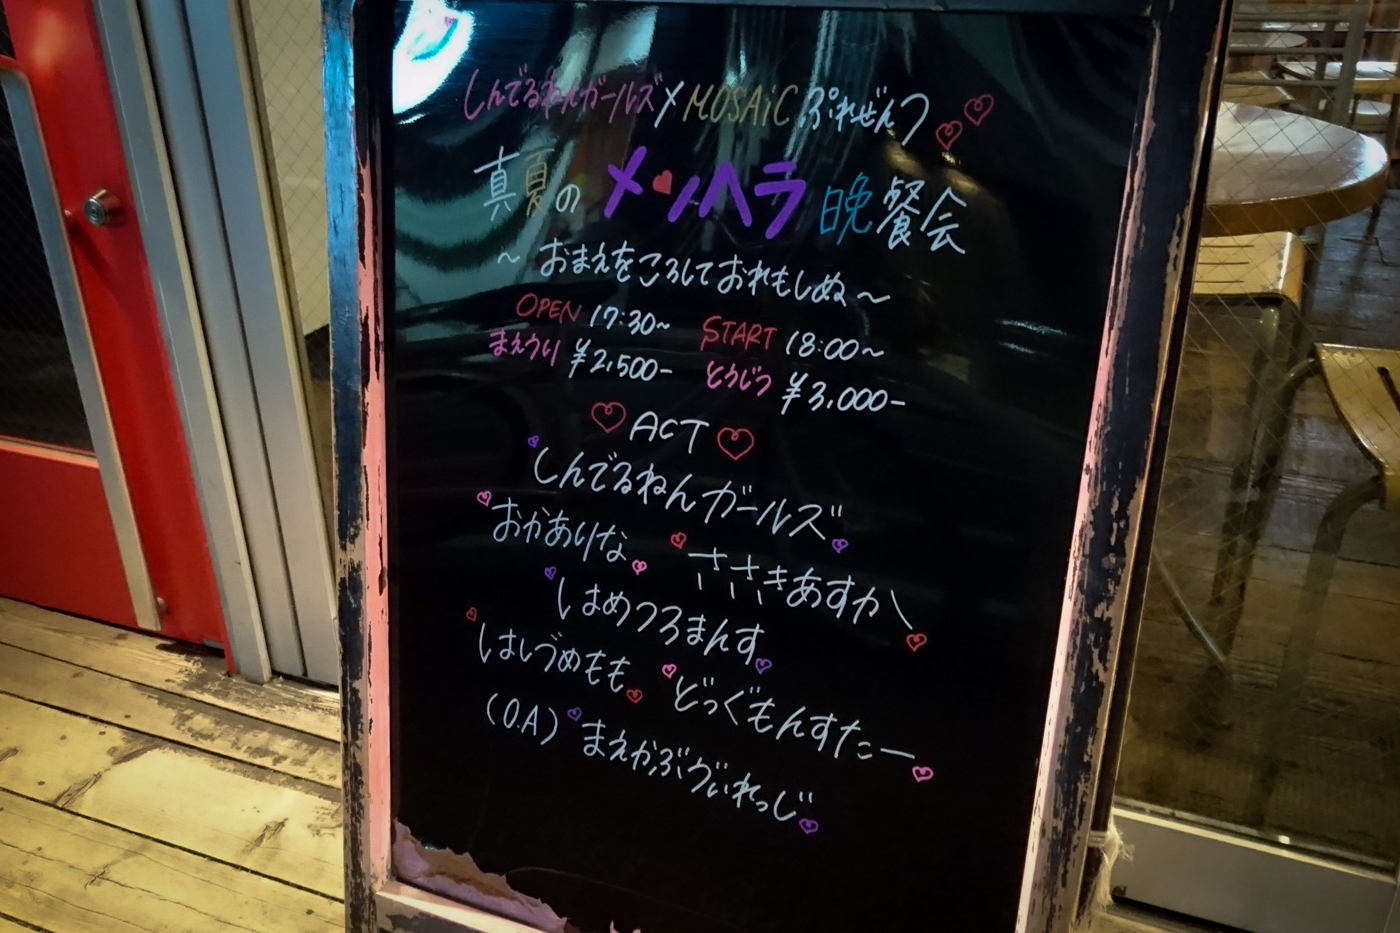 しんでるねんガールズ×MOSAiCぷれぜんつ
真夏のメンヘラ晩餐会
〜おまえをころしておれもしぬ〜
OPEN 17:30〜 START 18:00〜
まえうり ¥2,500- とうじつ ¥3,000-
ACT
しんでるねんガールズ
おかありな ささきあすか
はめつろまんす
はしづめもも どっぐもんすたー
(O.A) まえかぶゔぃれっじ